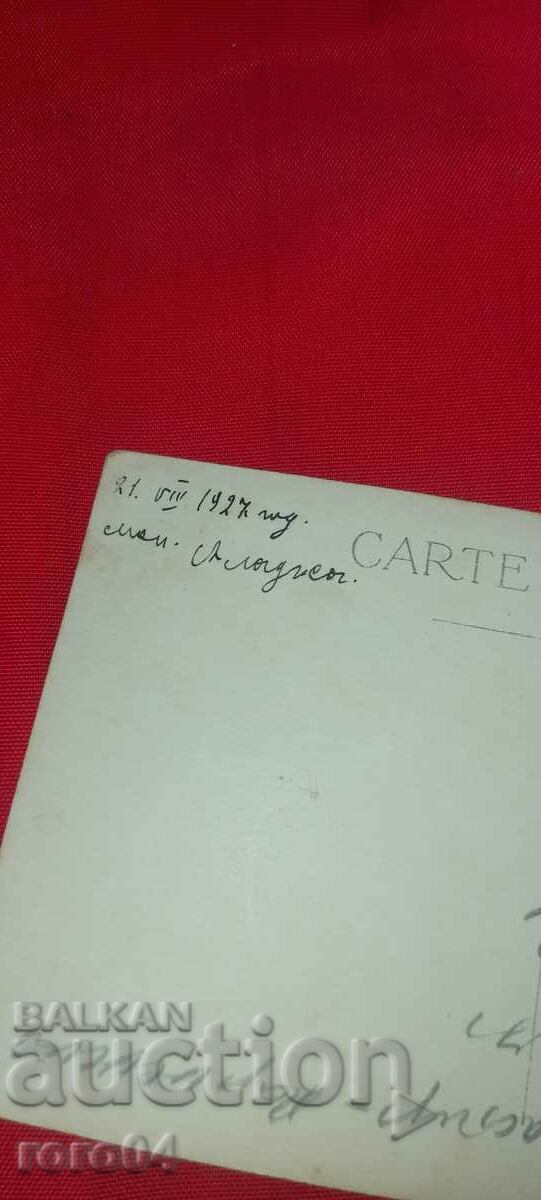 21. VIII 1927 год.
ман. Аладжа.
CARTE
BALKAN
auction
roro04